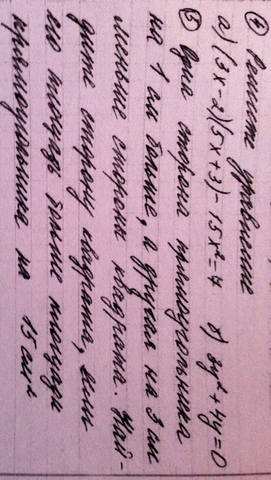 ④ Решить уравнение
а) (3х-2)(5х+3)-15х²=4 б) 8у²+4у=0
⑤ Одна сторона прямоугольника
на 1 см больше, а другая на 3 см
меньше стороны квадрата. Най-
дите сторону квадрата, если
его площадь больше площади
прямоугольника на 15 см²